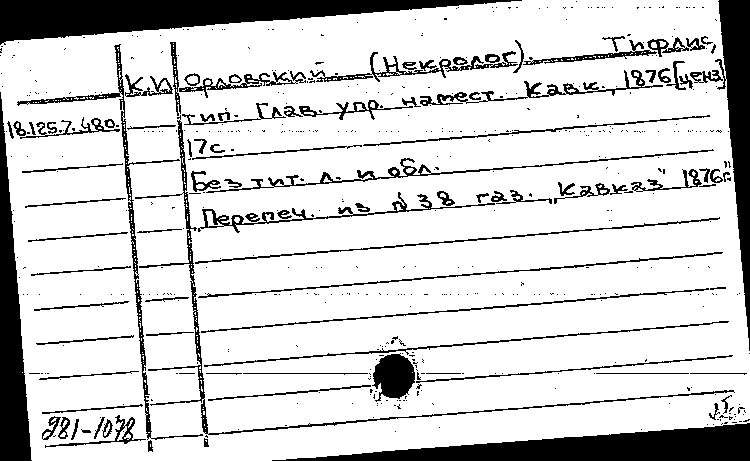 К.И Орловский. (Некролог). Тифлис,
18.125.7.480. тип. Глав. упр. намест. Кавк., 1876 [ценз]
17с.
Без тит. л. и обл.
"Перепеч. из № 38 газ. "Кавказ" 1876г."
981-1078